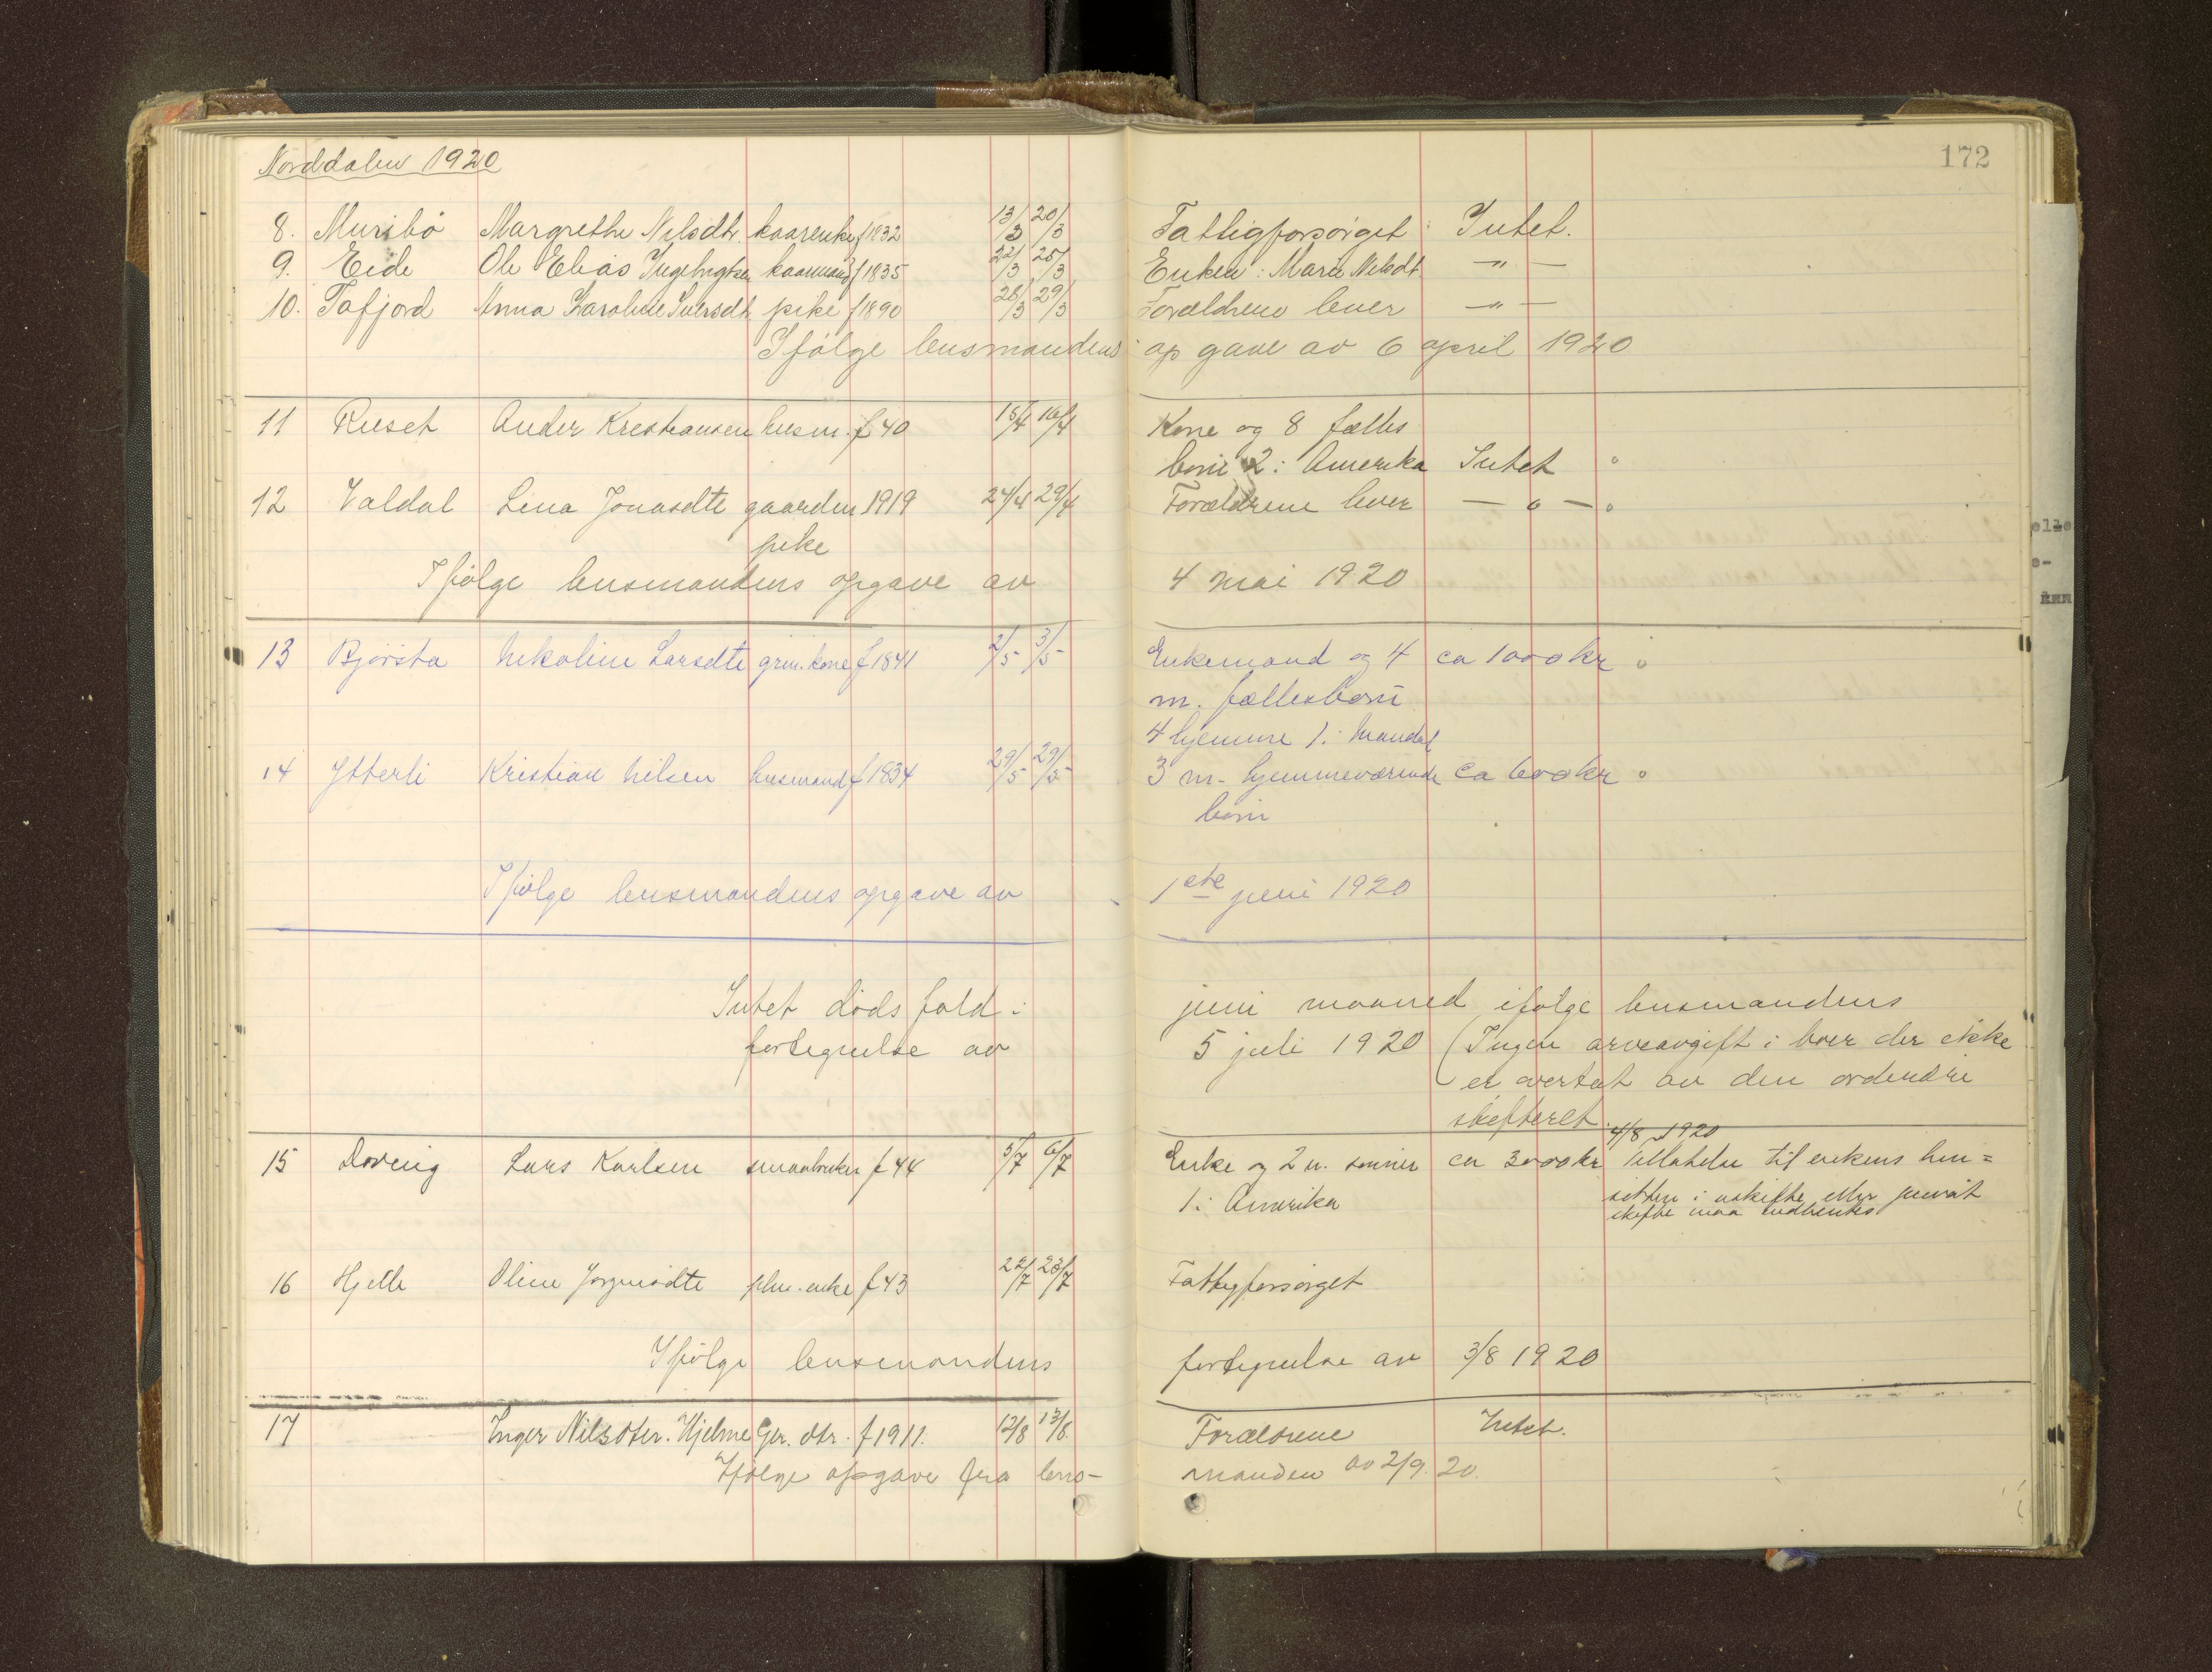 Norddalen 1920
172
8. Muribø Margrethe Nilsdtr. kaarenke f 1832 13/3 20/3 Fattigforsørget Intet.
9. Eide Ole Elias Ingebrigtsen kaarmand f 1835 22/3 25/3 Enken: Marie Nilsdt. — " —
10. Tafjord Anna Karoline Iversdt. pike f 1890 28/3 29/3 Forældrene lever — " —
Ifølge lensmandens opgave av 6 april 1920
11 Ruset Ander Kristiansen husm. f 40 15/4 16/4 Kone og 8 fælles
børn 2 i Amerika Intet
12 Valdal Lina Jonasdtr gaardm 1919 24/4 29/4 Forældrene lever — " —
pike
Ifølge lensmandens opgave av 4 mai 1920
13 Bjørsta Nikoline Larsdtr grm. kone f 1841 2/5 3/5 Enkemand og 4 ca 1000 kr
m. fællesbørn
4 hjemme 1 i Mandal
14 Ytterli Kristian Nilsen husmand f 1834 29/5 29/5 3 m. hjemmeværende ca 600 kr
børn
Ifølge lensmandens opgave av 1ste juni 1920
Intet dødsfald i juni maaned ifølge lensmandens
fortegnelse av 5 juli 1920 (Ingen arveavgift i boer der ikke
er overtat av den ordendre
skifteret.
4/8 1920
15 Døving Lars Karlsen smaabruker f 44 5/7 6/7 Enke og 2 m. sønner ca 3000 kr Tillatelse til enkens hen=
1 i Amerika sitten i uskifte eller privat
skifte maa indhentes
16 Hjelle Oline Jørginsdtr plm. enke f 43 22/7 23/7 Fattigforsørget
Ifølge lensmandens fortegnelse av 3/8 1920
17 Inger Nilsdter. Hjelme Gr. dtr. f 1911. 12/8 13/8 Forældrene Intet.
Ifølge opgave fra lens-
manden av 2/9. 20.
elle
e-